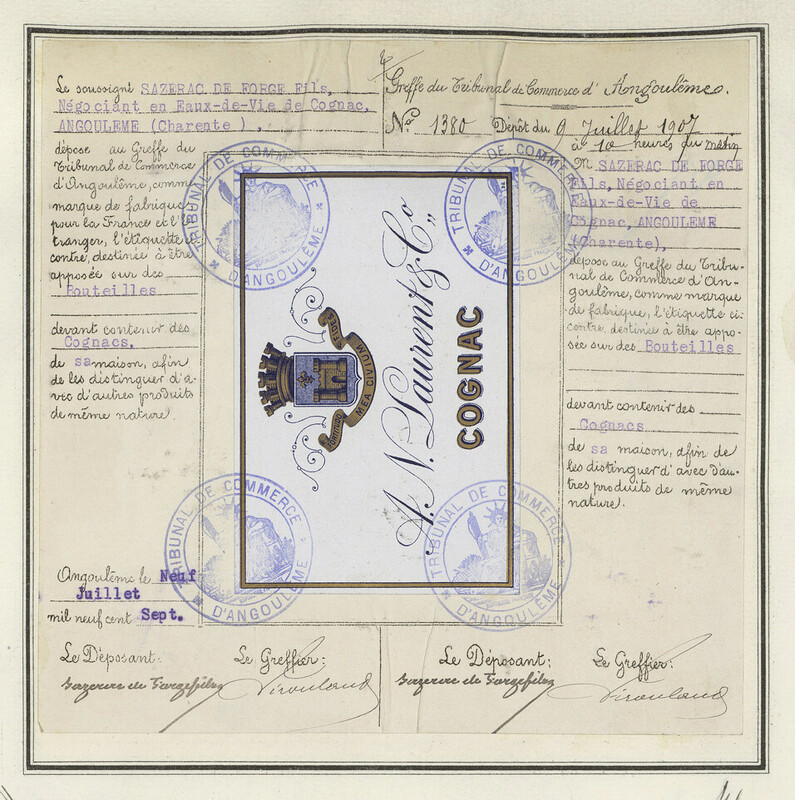 Le soussigné SAZERAC DE FORGE Fils,
Négociant en Eaux-de-Vie de Cognac,
ANGOULEME (Charente ),
dépose au Greffe du
Tribunal de Commerce
d'Angoulême, comme
marque de fabrique
pour la France et l'É
tranger, l'étiquette ci
contre, destinée à être
apposée sur des
Bouteilles
devant contenir des
Cognacs.
de sa maison, afin
de les distinguer d'a-
vec d'autres produits
de même nature.
Angoulême le Neuf
Juillet
mil neuf cent Sept.
Le Déposant:
Sazerac de Forge fils
Le Greffier:
TRIBUNAL DE COMMERCE
D'ANGOULÊME
TRIBUNAL DE COMMERCE
D'ANGOULÊME
A. N. Laurent & Co.,
COGNAC
FORTITUDO MEA CIVIUM FIDES
TRIBUNAL DE COMMERCE
D'ANGOULÊME
TRIBUNAL DE COMMERCE
D'ANGOULÊME
Greffe du Tribunal de Commerce d'Angoulême.
No 1380 Dépôt du 9 Juillet 1907
à 10 heures du matin
M SAZERAC DE FORGE
Fils, Négociant en
Eaux-de-Vie de
Cognac, ANGOULEME
(Charente),
dépose au Greffe du Tribu-
nal de Commerce d'An-
goulême, comme marque
de fabrique, l'étiquette ci-
contre destinée à être appo-
sée sur des Bouteilles
devant contenir des
Cognacs
de sa maison, afin de
les distinguer d'avec d'au-
tres produits de même
nature.
Le Déposant:
Sazerac de Forge fils
Le Greffier: